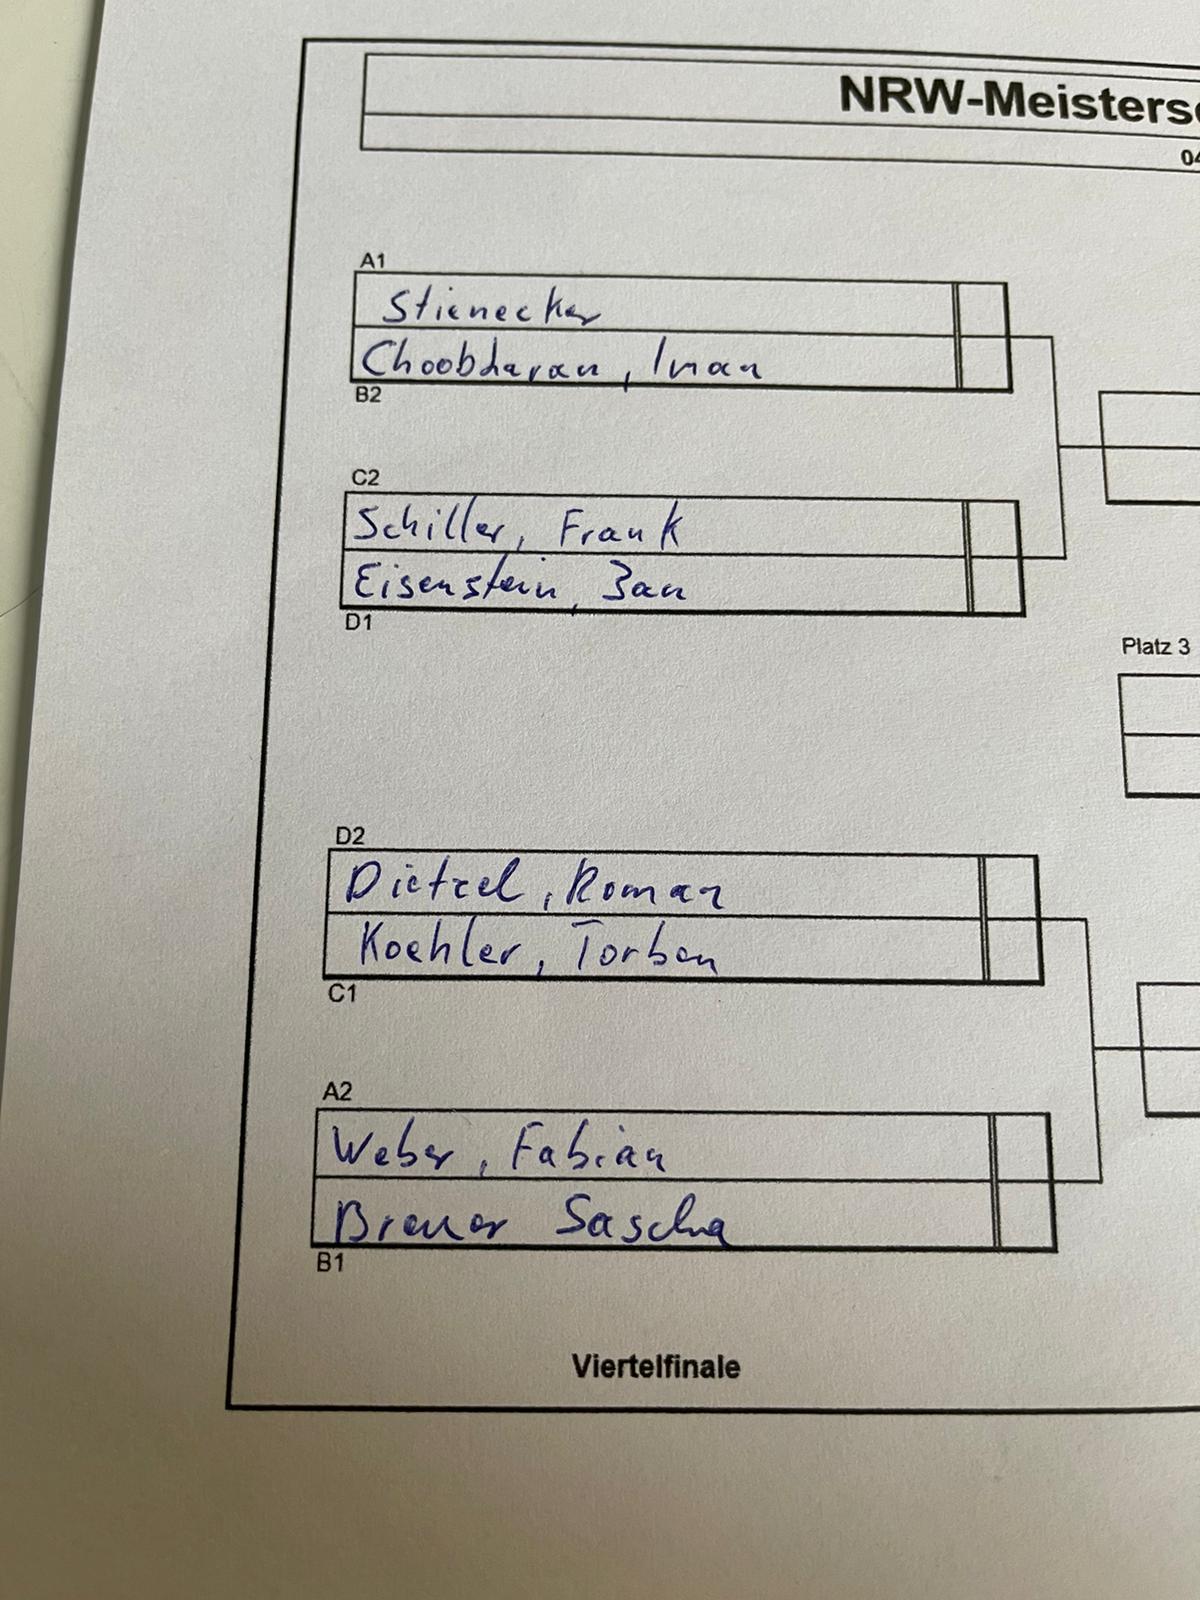 NRW-Meistersc
04
A1
Stienecker
Choobdaran, Iman
B2
C2
Schiller, Frank
Eisenstein, Jan
D1
Platz 3
D2
Dietzel, Roman
Koehler, Torben
C1
A2
Weber, Fabian
Breuer Sascha
B1
Viertelfinale